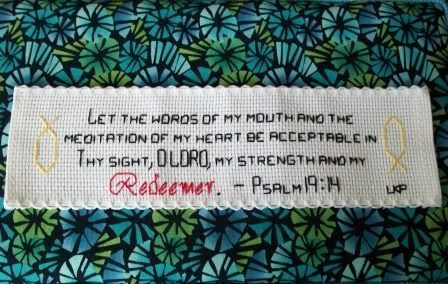 LET THE WORDS OF MY MOUTH AND THE
MEDITATION OF MY HEART BE ACCEPTABLE IN
THY SIGHT, O LORD, MY STRENGTH AND MY
Redeemer. - PSALM 19:14
LKP